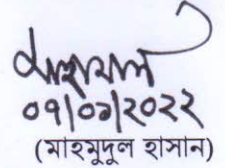 ০৭/০৬/২০২২
(মাহমুদুল হাসান)